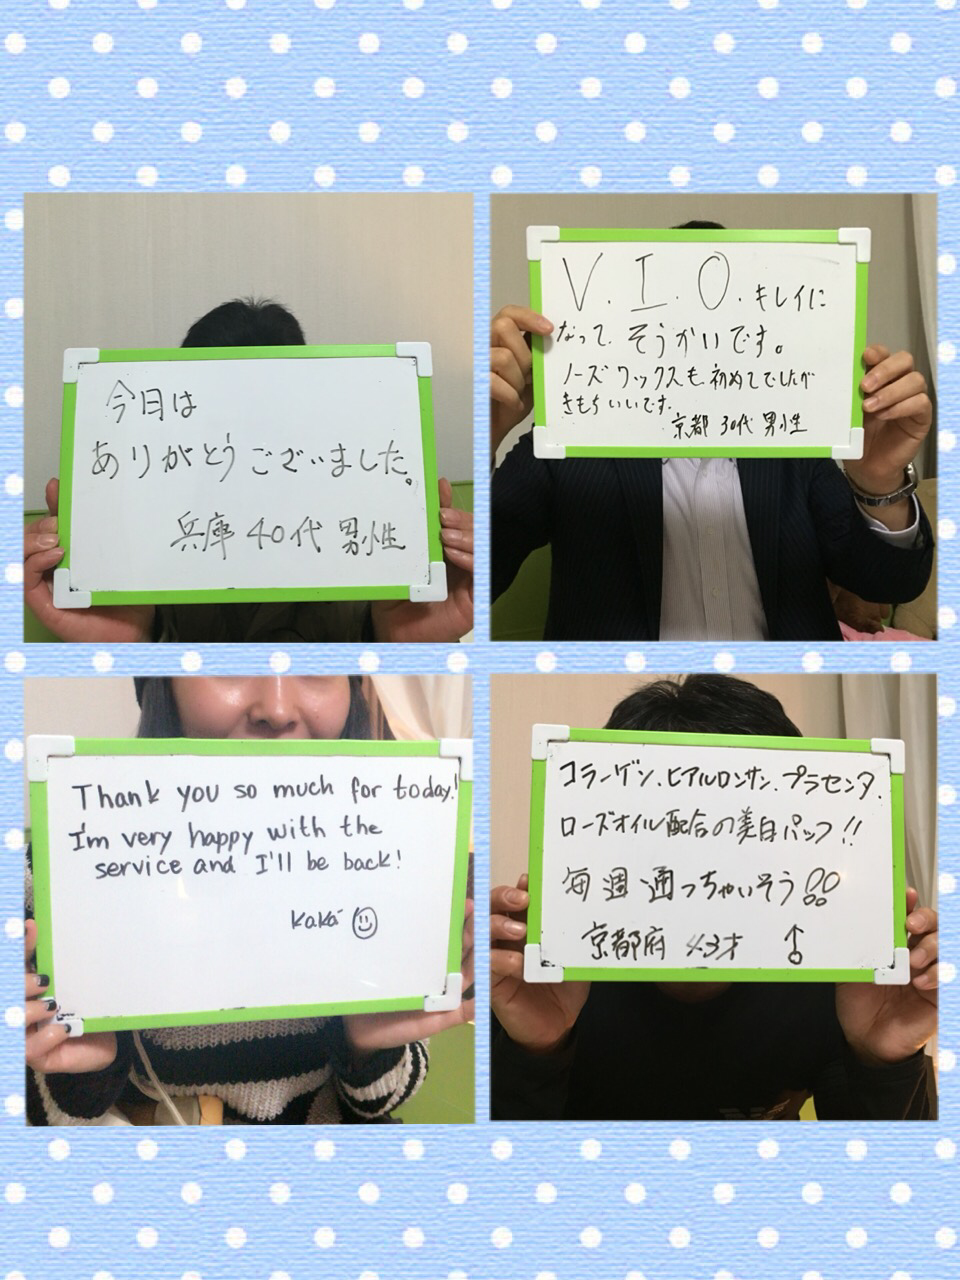 今日は
ありがとうございました。
兵庫 40代 男性
V. I. O. キレイに
なって、そうかいです。
ノーズワックスも、初めてでしたが
きもちいいです。
京都 30代 男性
Thank you so much for today!
I'm very happy with the
service and I'll be back!
KaKa ☺
コラーゲン、ヒアルロンサン、プラセンタ、
ローズオイル配合の美白パック!!
毎週通っちゃいそう!!
京都府 43才 ♂